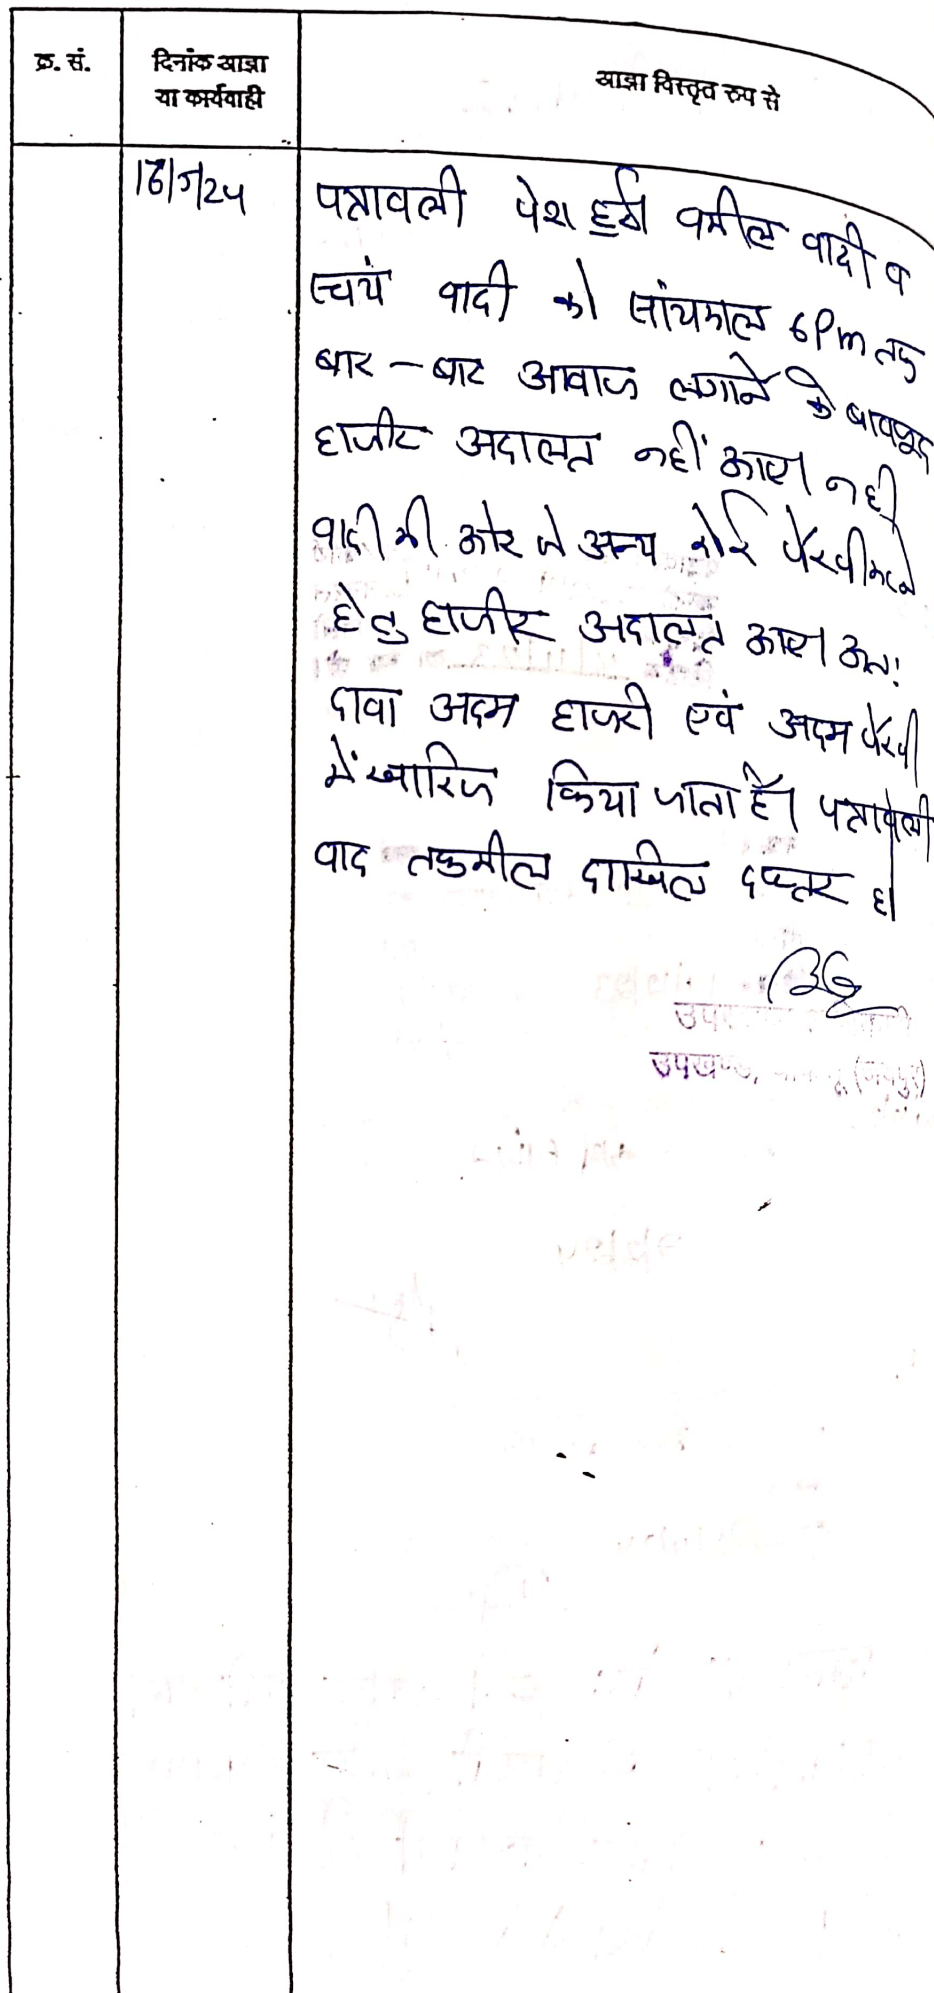 क्र. सं.
दिनांक आज्ञा
या कार्यवाही
आज्ञा विस्तृत रूप से
पत्रावली पेश हुई वकील वादी व
स्वयं वादी को सांयकाल 6Pm तक
बार - बार आवाज लगाने के बावजूद
हाजीर अदालत नहीं आए। नही
वादी की ओर से अन्य कोई पैरवी करने
हेतु हाजीर अदालत आए। अतः
दावा अदम हाजरी एवं अदम पैरवी
में खारिज किया जाता है। पत्रावली
वाद तकमील दाखिल दफ्तर हो
उपखण्ड, (जयपुर)